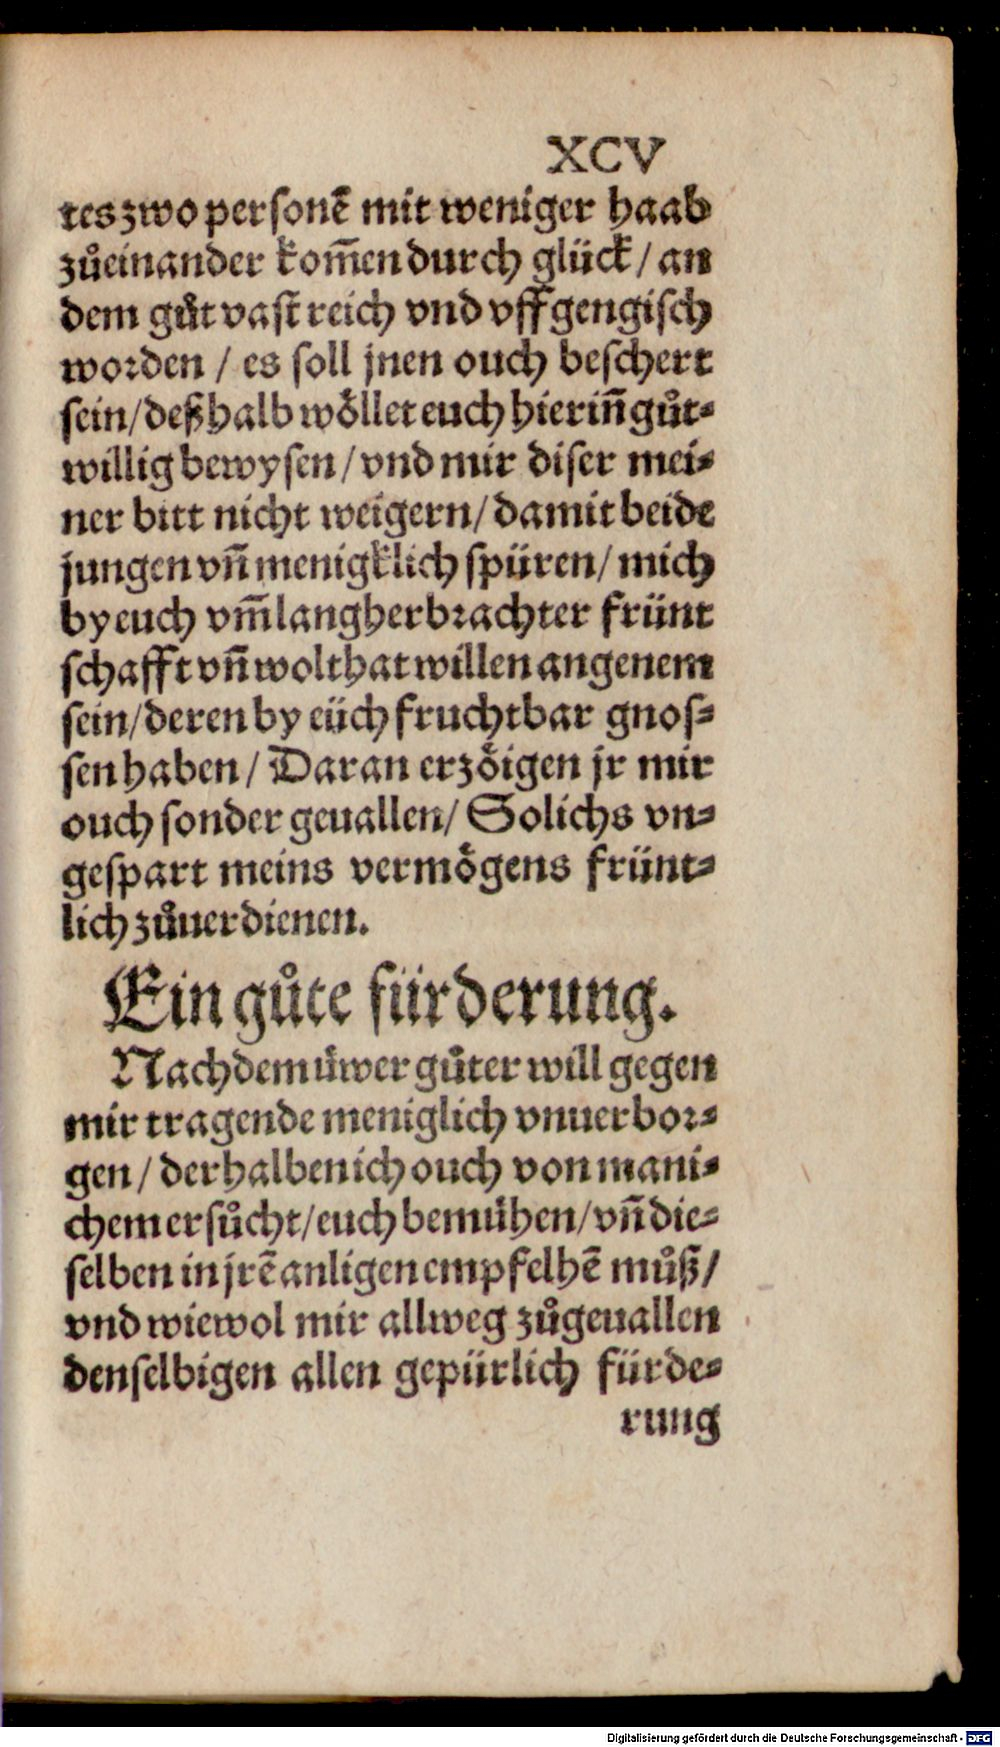 XCV
tes zwo personē mit weniger haab
zůeinander kom̄en durch glück / an
dem gůt vast reich vnd vffgengisch
worden / es soll jnen ouch beschert
sein / deßhalb wöllet euch hierin̄ gůt⸗
willig bewysen / vnd mir diser mei⸗
ner bitt nicht weigern / damit beide
jungen vn̄ menigklich spüren / mich
by euch vm̄ langherbrachter frünt
schafft vn̄ wolthat willen angenem
sein / deren by eüch fruchtbar gnos⸗
sen haben / Daran erzöigen jr mir
ouch sonder geuallen / Solichs vn⸗
gespart meins vermögens frünt⸗
lich zůuerdienen.
Ein gůte fürderung.
Nachdem üwer gůter will gegen
mir tragende meniglich vnuerbor⸗
gen / derhalben ich ouch von mani⸗
chem ersůcht / euch bemühen / vn̄ die⸗
selben in jrē anligen empfelhē můß /
vnd wiewol mir allweg zůgeuallen
denselbigen allen gepürlich fürde⸗
rung
Digitalisierung gefördert durch die Deutsche Forschungsgemeinschaft - DFG